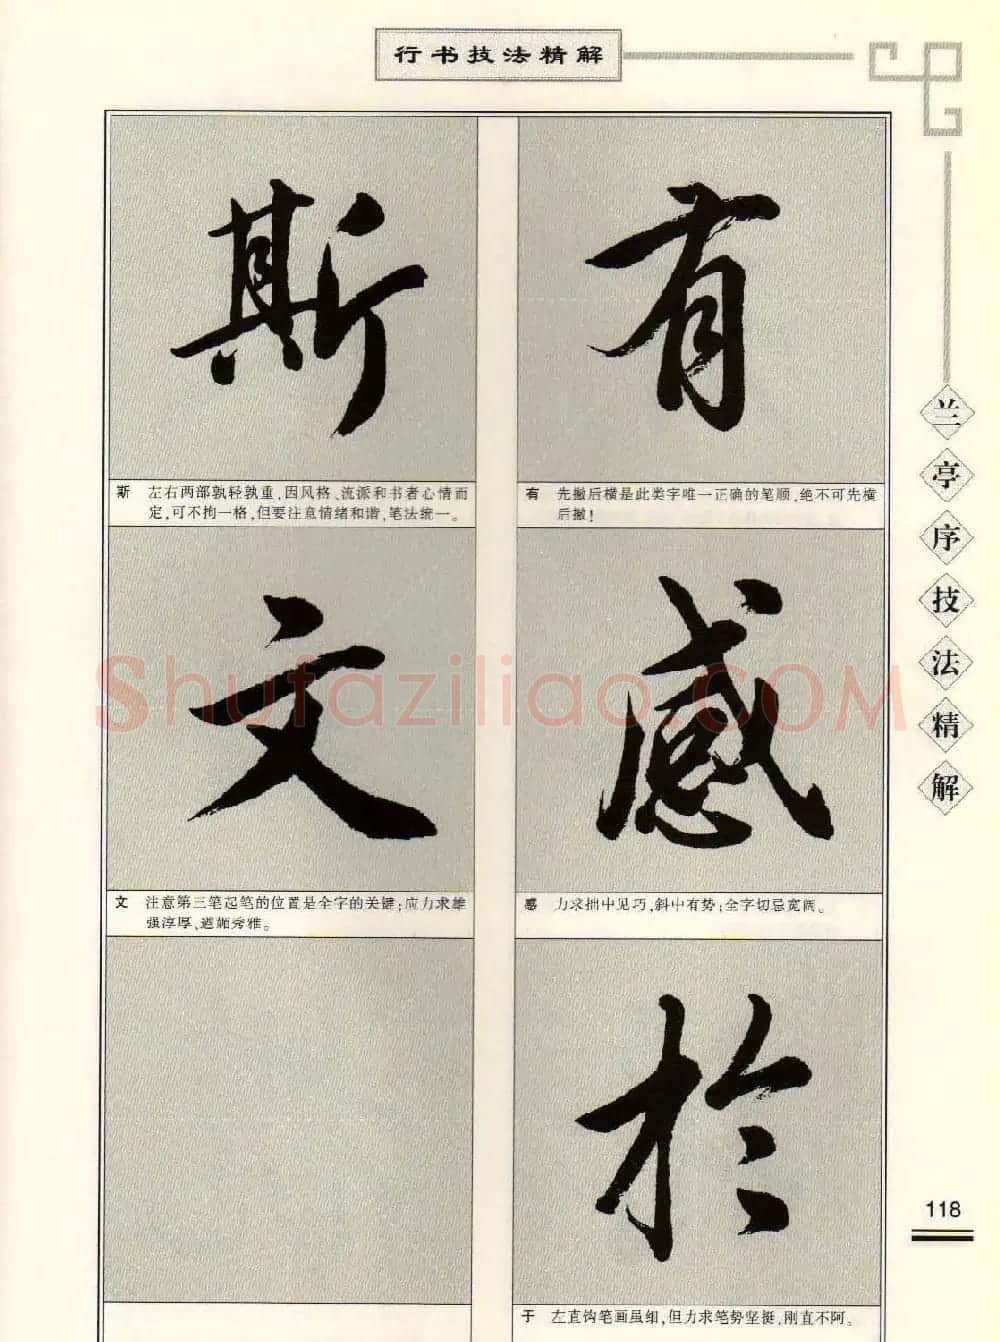 行书技法精解
有
有 先撇后横是此类字唯一正确的笔顺,绝不可先横
后撇!
感
感 力求拙中见巧,斜中有势;全字切忌宽阔。
於
于 左直钩笔画虽细,但力求笔势坚挺,刚直不阿。
斯
斯 左右两部孰轻孰重,因风格、流派和书者心情而
定,可不拘一格,但要注意情绪和谐,笔法统一。
文
文 注意第三笔起笔的位置是全字的关键;应力求雄
强淳厚,遒媚秀雅。
兰亭序技法精解
118
Shufaziliao.COM